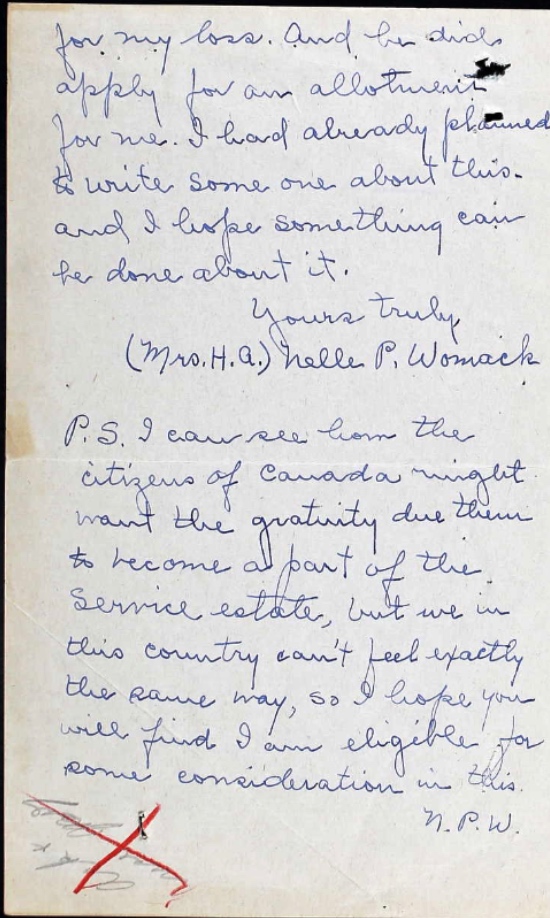 for my loss. And he did
apply for an allotment
for me. I had already planned
to write some one about this.
and I hope something can
be done about it.
Yours truly,
(Mrs. H.A.) Nelle P. Womack
P.S. I can see how the
citizens of Canada might
want the gratuity due them
to become a part of the
Service estate, but we in
this country can't feel exactly
the same way, so I hope you
will find I am eligible for
some consideration in this.
N.P.W.